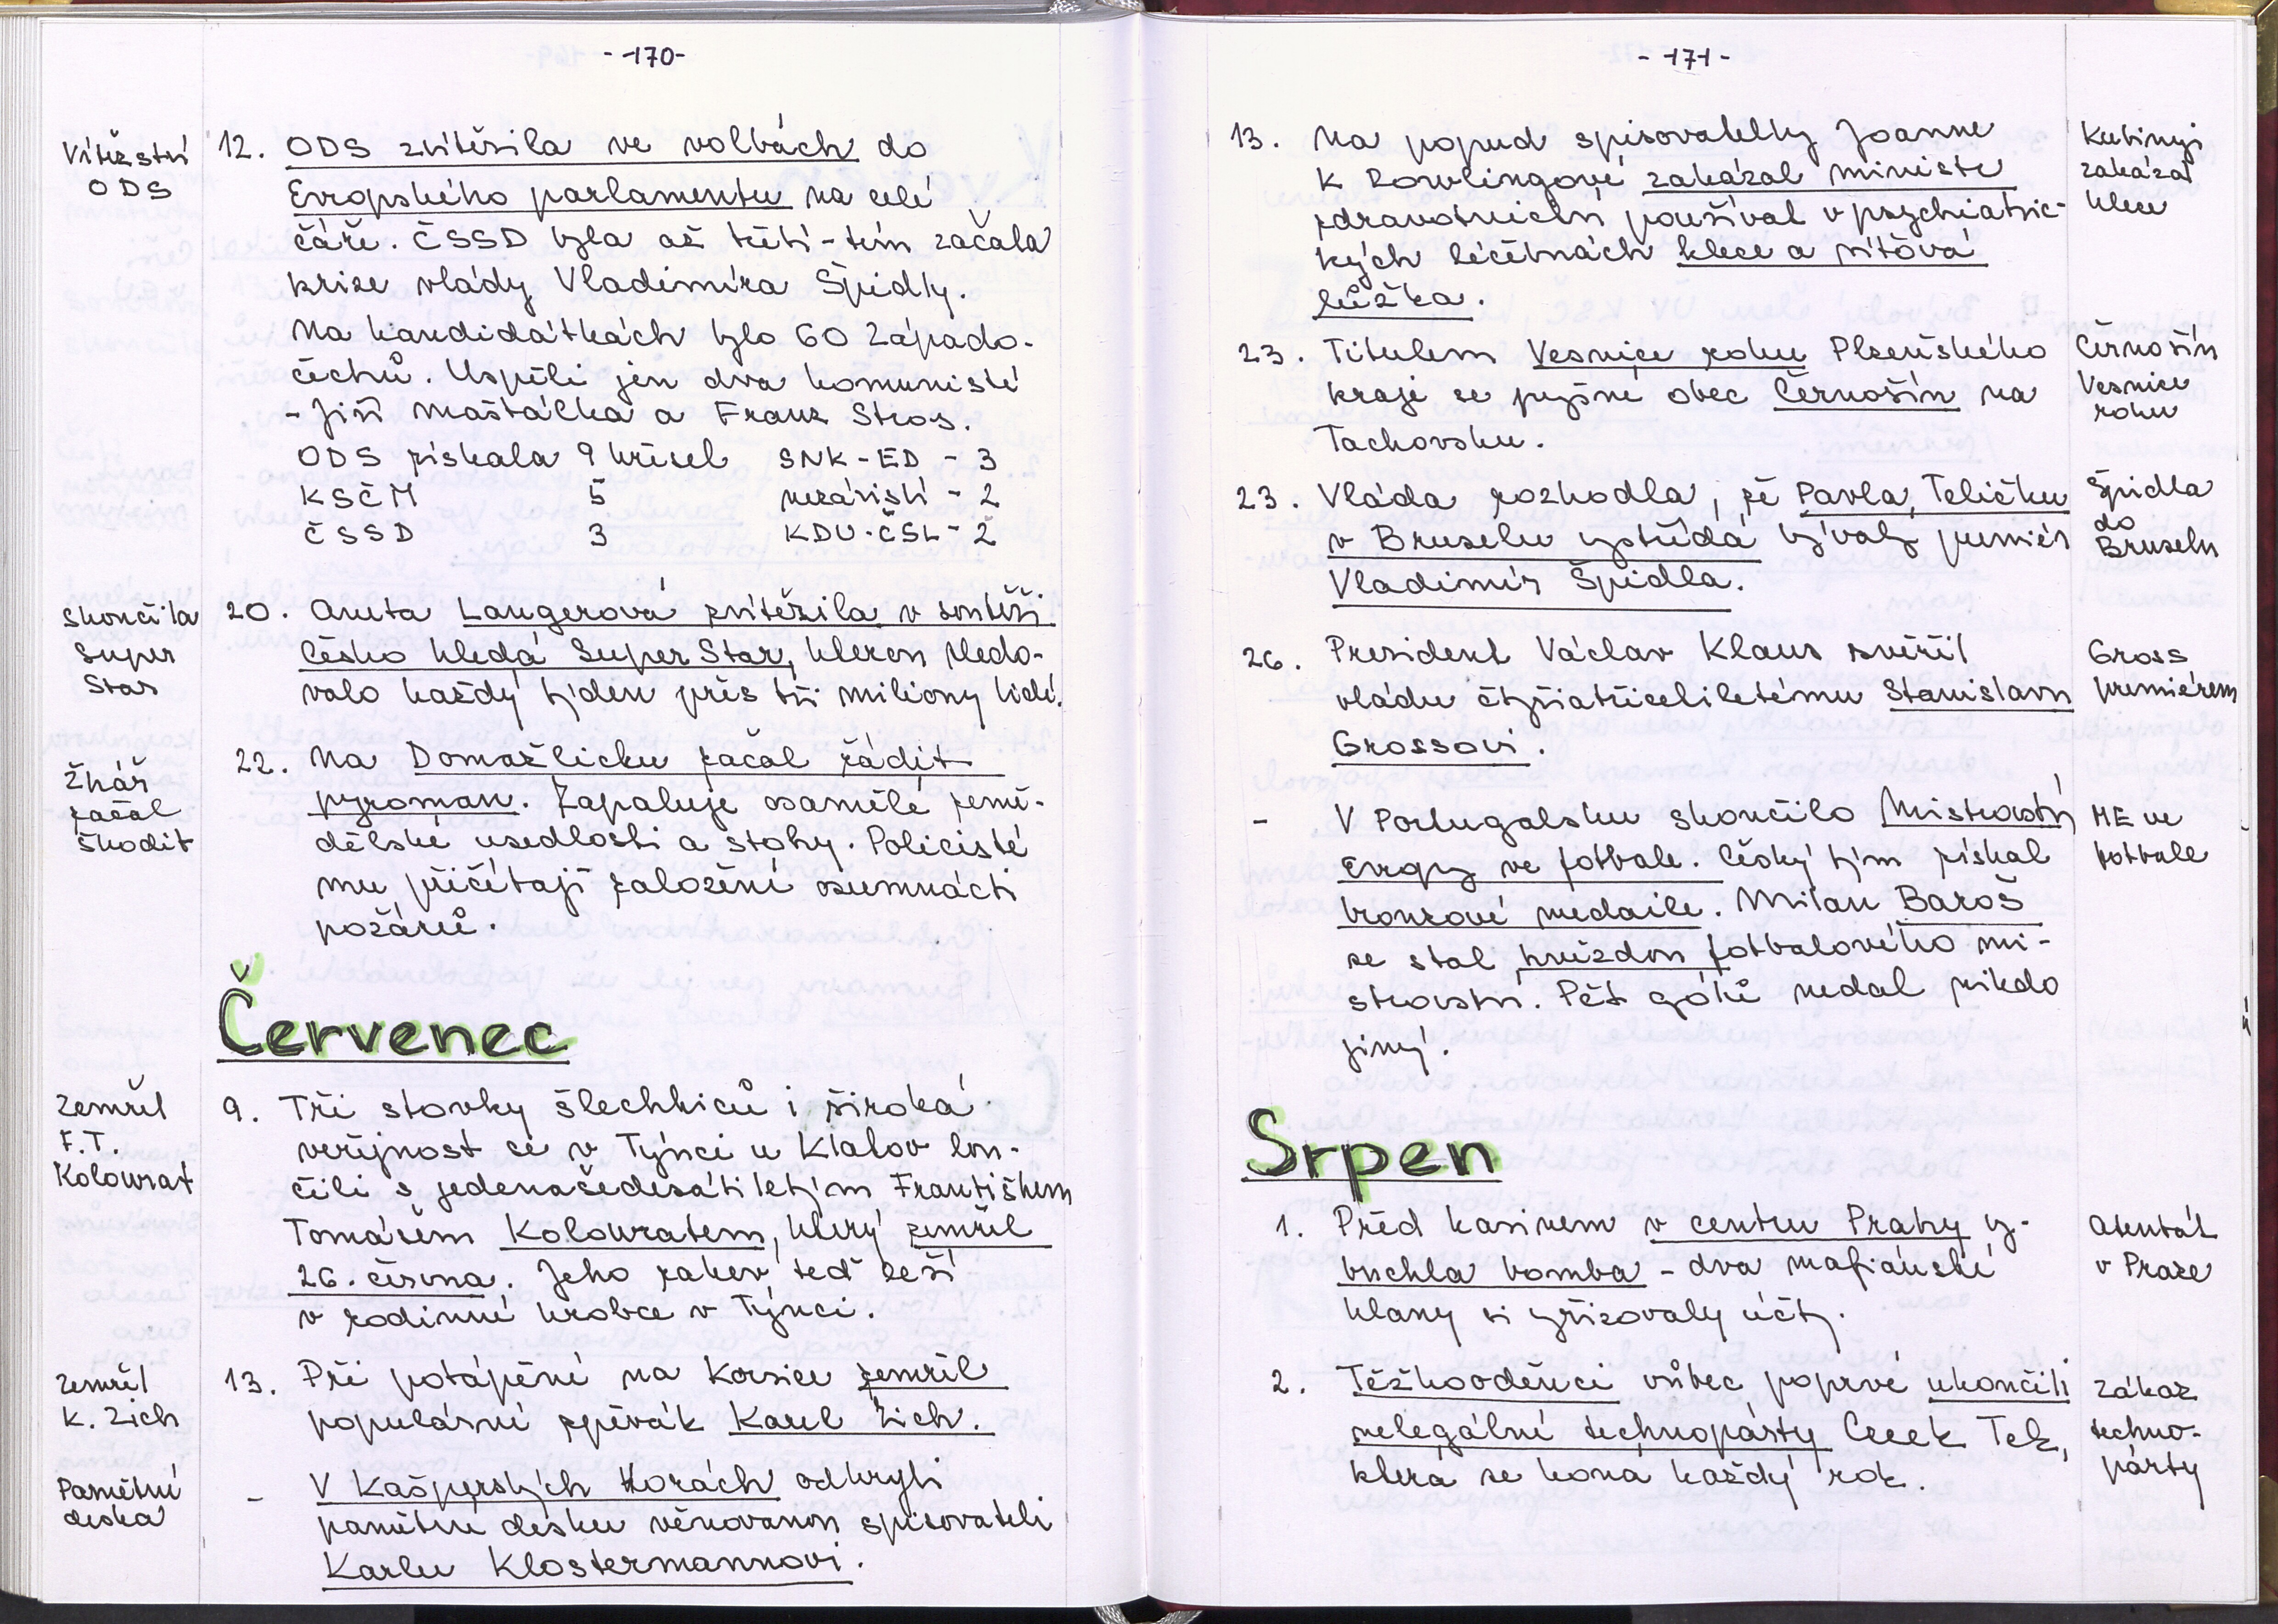 -170-
Vítězství
ODS
12. ODS zvítězila ve volbách do
Evropského parlamentu na celé
čáře. ČSSD byla až třetí - tím začala
krize vlády Vladimíra Špidly.
Na kandidátkách bylo 60 Západo-
čechů. Uspěli jen dva komunisté
- Jiří Maštálka a Franz Stros.
ODS získala 9 křesel SNK-ED - 3
KSČM 5 nezávislí - 2
ČSSD 3 KDU-ČSL - 2
Skončila
Super
Star
20. Aneta Langerová zvítězila v soutěži
Česko hledá SuperStar, kterou sledo-
valo každý týden přes tři miliony lidí.
Žhář
začal
škodit
22. Na Domažlicku začal řádit
pyroman. Zapaluje osamělé země-
dělské usedlosti a stohy. Policisté
mu přičítají založení osumnácti
požárů.
Červenec
Zemřel
F.T.
Kolowrat
9. Tři stovky šlechticů i široká
veřejnost se v Týnci u Klatov lou-
čili s jedenašedesátiletým Františkem
Tomášem Kolowratem, který zemřel
26. června. Jeho rakev teď leží
v rodinné hrobce v Týnci.
Zemřel
K. Zich
13. Při potápění na Korsice zemřel
populární zpěvák Karel Zich.
Pamětní
deska
- V Kašperských Horách odkryli
pamětní desku věnovanou spisovateli
Karlu Klostermannovi.
-171-
13. Na popud spisovatelky Joanne
K Rowlingové zakázal ministr
zdravotnictví používat v psychiatric-
kých léčebnách klece a síťová
lůžka.
Kubinyi
zakázal
klece
23. Titulem Vesnice roku Plzeňského
kraje se pyšní obec Černošín na
Tachovsku.
Černošín
Vesnice
roku
23. Vláda rozhodla, že Pavla Teličku
v Bruselu vystřídá bývalý premiér
Vladimír Špidla.
Špidla
do
Bruselu
26. President Václav Klaus svěřil
vládu čtyřiatřicetiletému Stanislavu
Grossovi.
Gross
premiérem
- V Portugalsku skončilo Mistrovství
Evropy ve fotbale. Český tým získal
bronzové medaile. Milan Baroš
se stal hvězdou fotbalového mi-
strovství. Pět gólů nedal nikdo
jiný.
ME ve
fotbale
Srpen
1. Před kasinem v centru Prahy vy-
buchla bomba - dva mafiánské
klany si vyřizovaly účty.
Atentát
v Praze
2. Těžkooděnci vůbec poprvé ukončili
nelegální technopárty Czeek Tek,
která se koná každý rok.
Zákaz
techno-
párty